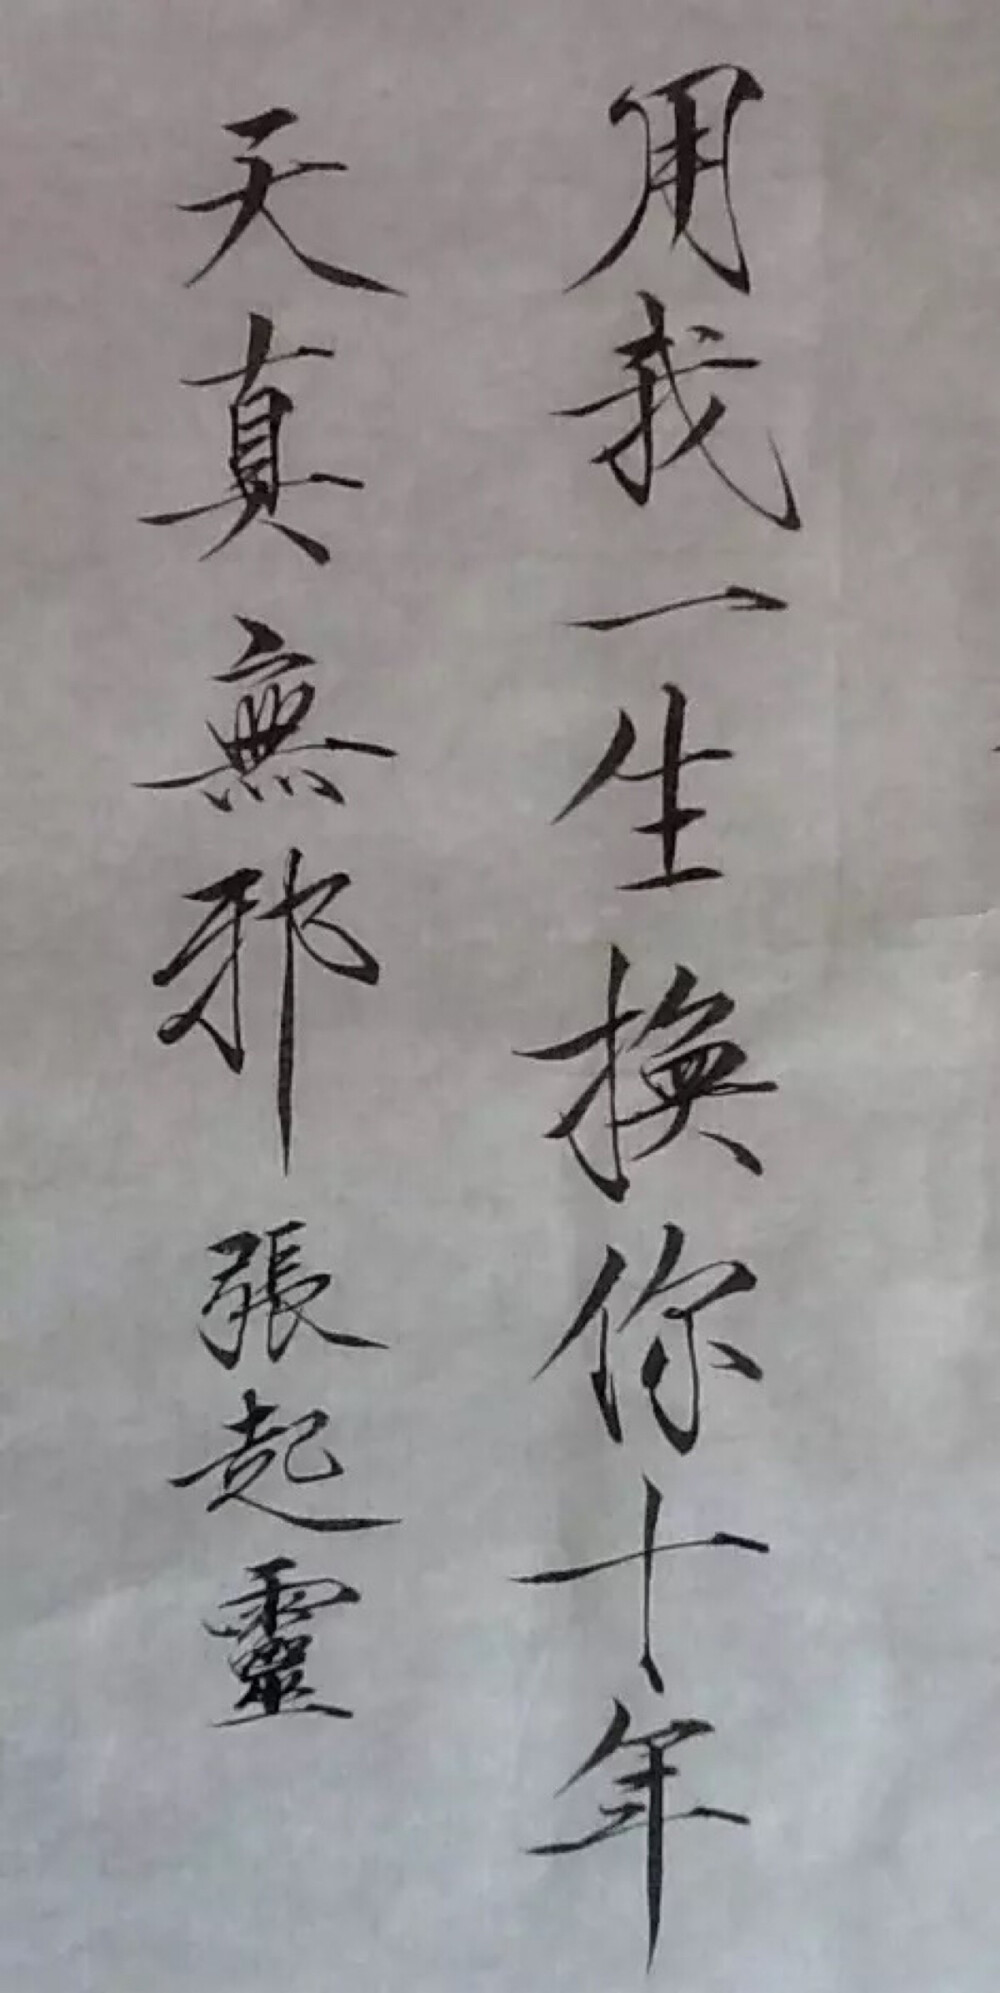 用我一生換你十年
天真無邪張起靈